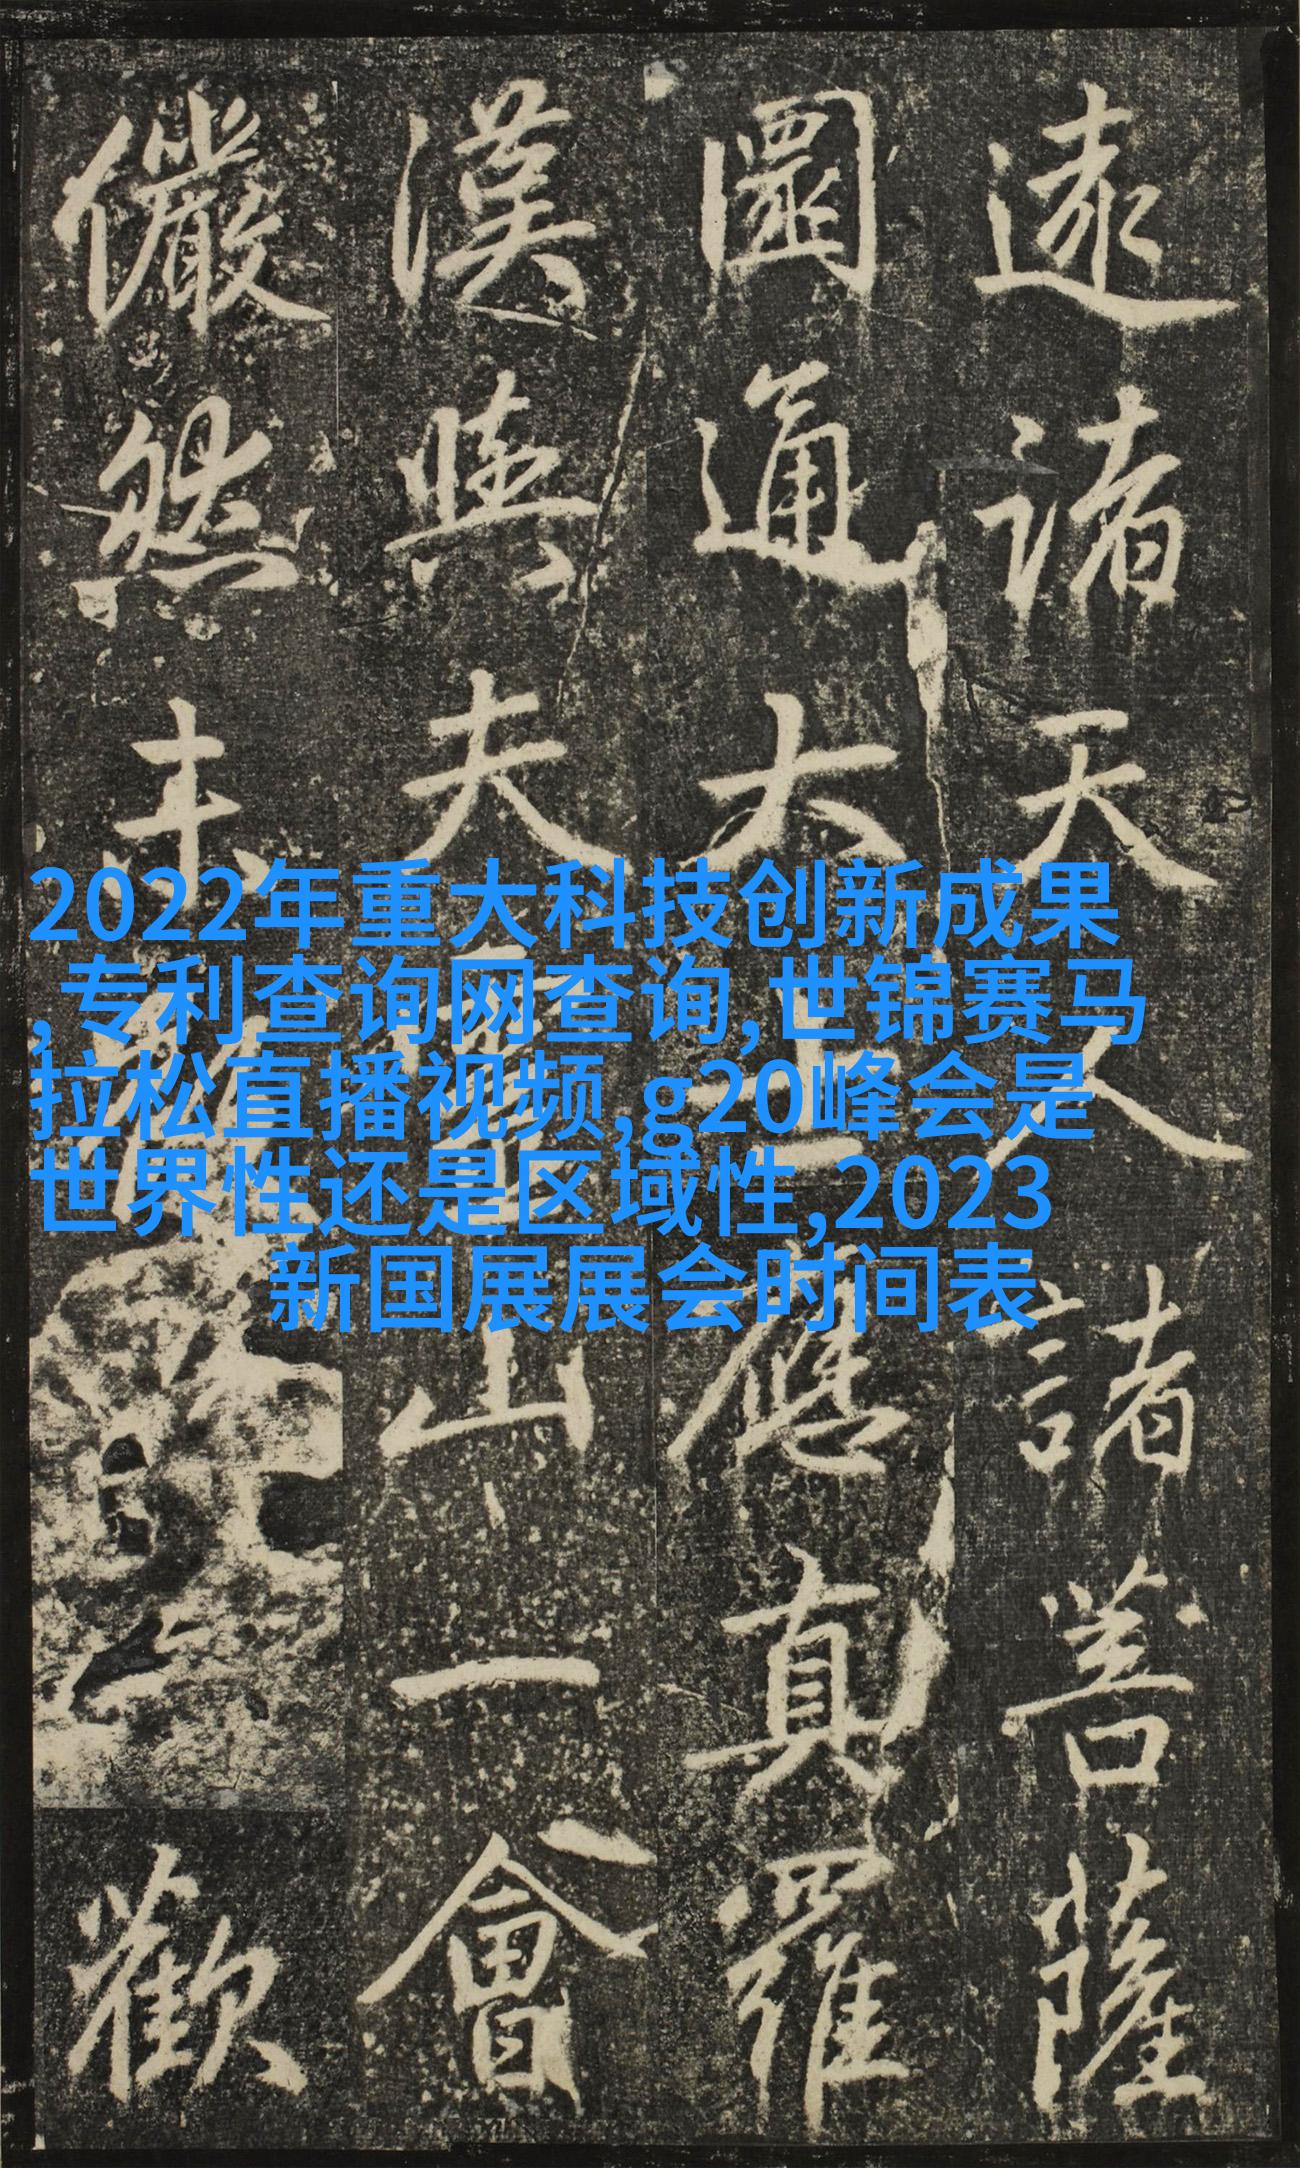 遠諸天人諸菩薩
圓通大士應真羅
漢與夫靈山一會
儼然未歡
2022年重大科技创新成果
,专利查询网查询,世锦赛马
拉松直播视频,g20峰会是
世界性还是区域性,2023
新国展展会时间表